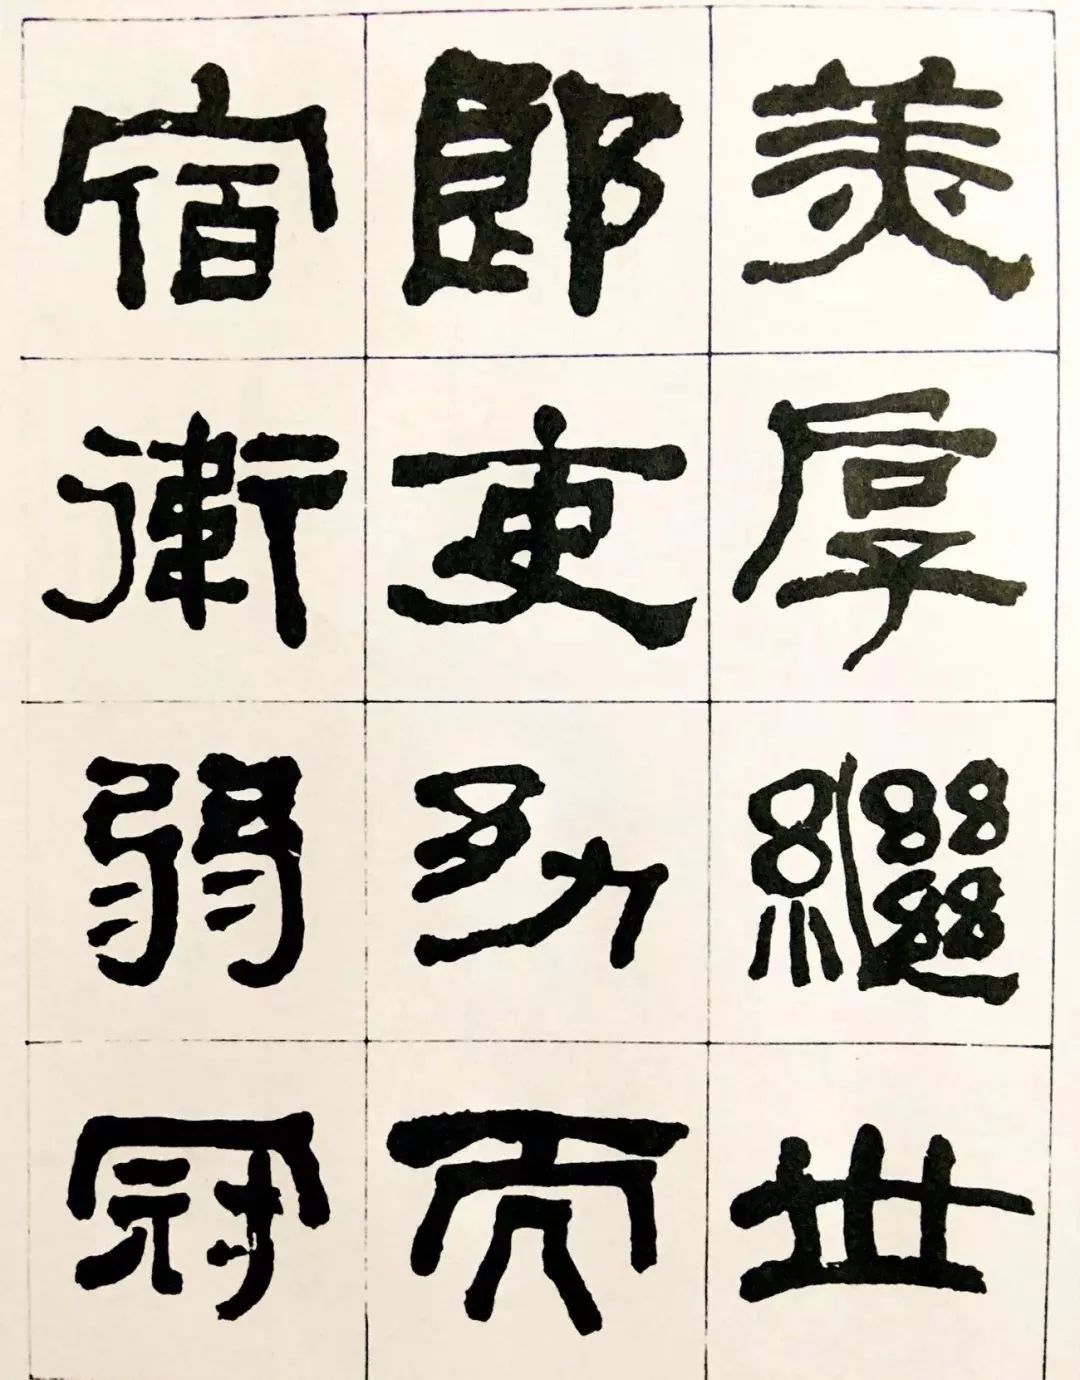 美厚繼世
郎吏幼而
宿衛弱冠